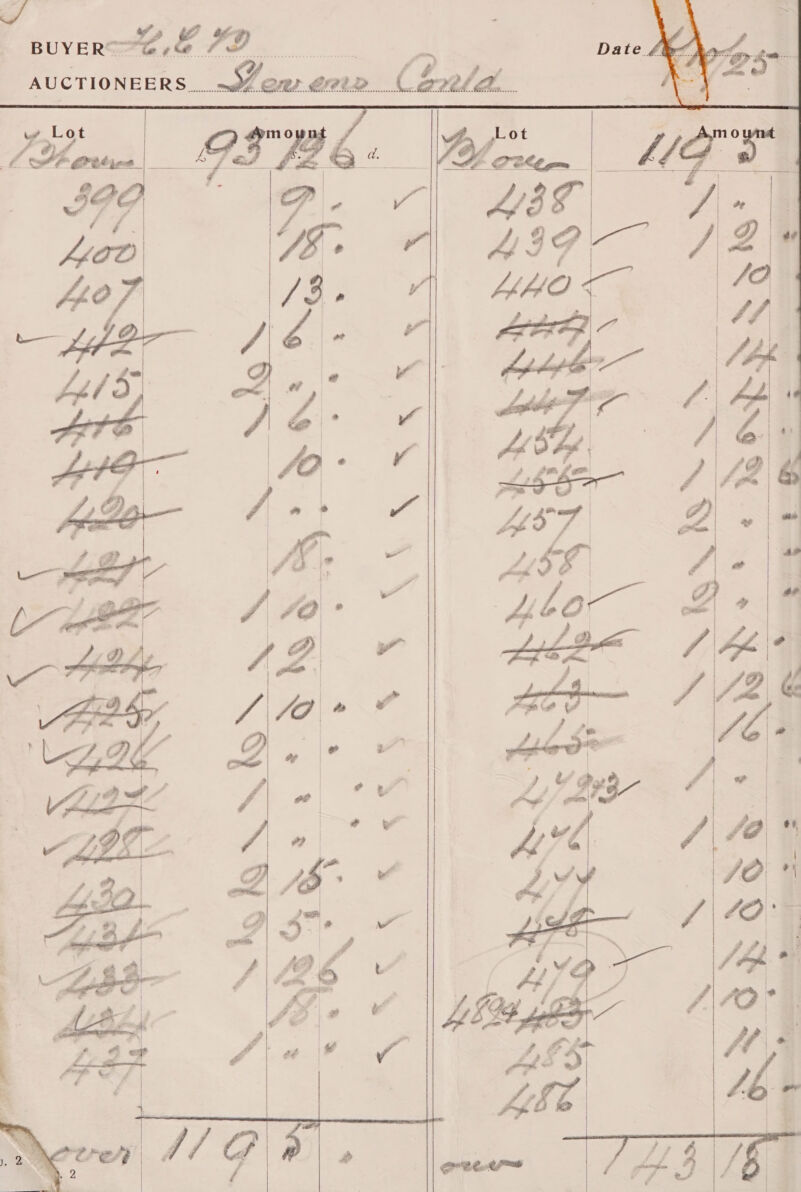 BUYER H. C &D
Date /25
AUCTIONEERS Stevens Contd
Lot Amount
Bt over £93 s.12 6 d.
399 9 . ✓
400 18 . ✓
407 13 . ✓
✓ 412 1 6 " ✓
415 2 " " ✓
416 1 6 . ✓
419 10 . ✓
420 1 " " ✓
421 18 . ✓
✓ 422 1 10 . ✓
✓ 424 12 ✓
✓ 425 1 10 " ✓
✓ 426 2 " " ✓
✓ 427 1 " " ✓
✓ 428 1 " " ✓
430 2 15 . ✓
431 2 5 . ✓
433 1 12 6 ✓
434 18 . ✓
437 1 " " ✓
over 119 5 .
2
. 2
Lot Amount
Bt over 119 5
438 1 "
439 1 2 "
440 10
444 11
446 14
447 1 4 .
454 1 6 .
455 1 12 6
457 2 " "
458 1 " "
460 2 " "
462 1 4 .
463 1 12 6
465 16 .
472+3 1 "
476 1 10 "
477 10 "
478 1 10 .
479 14 .
482+483 1 10 .
485 11 .
486 16 -
over 143 18